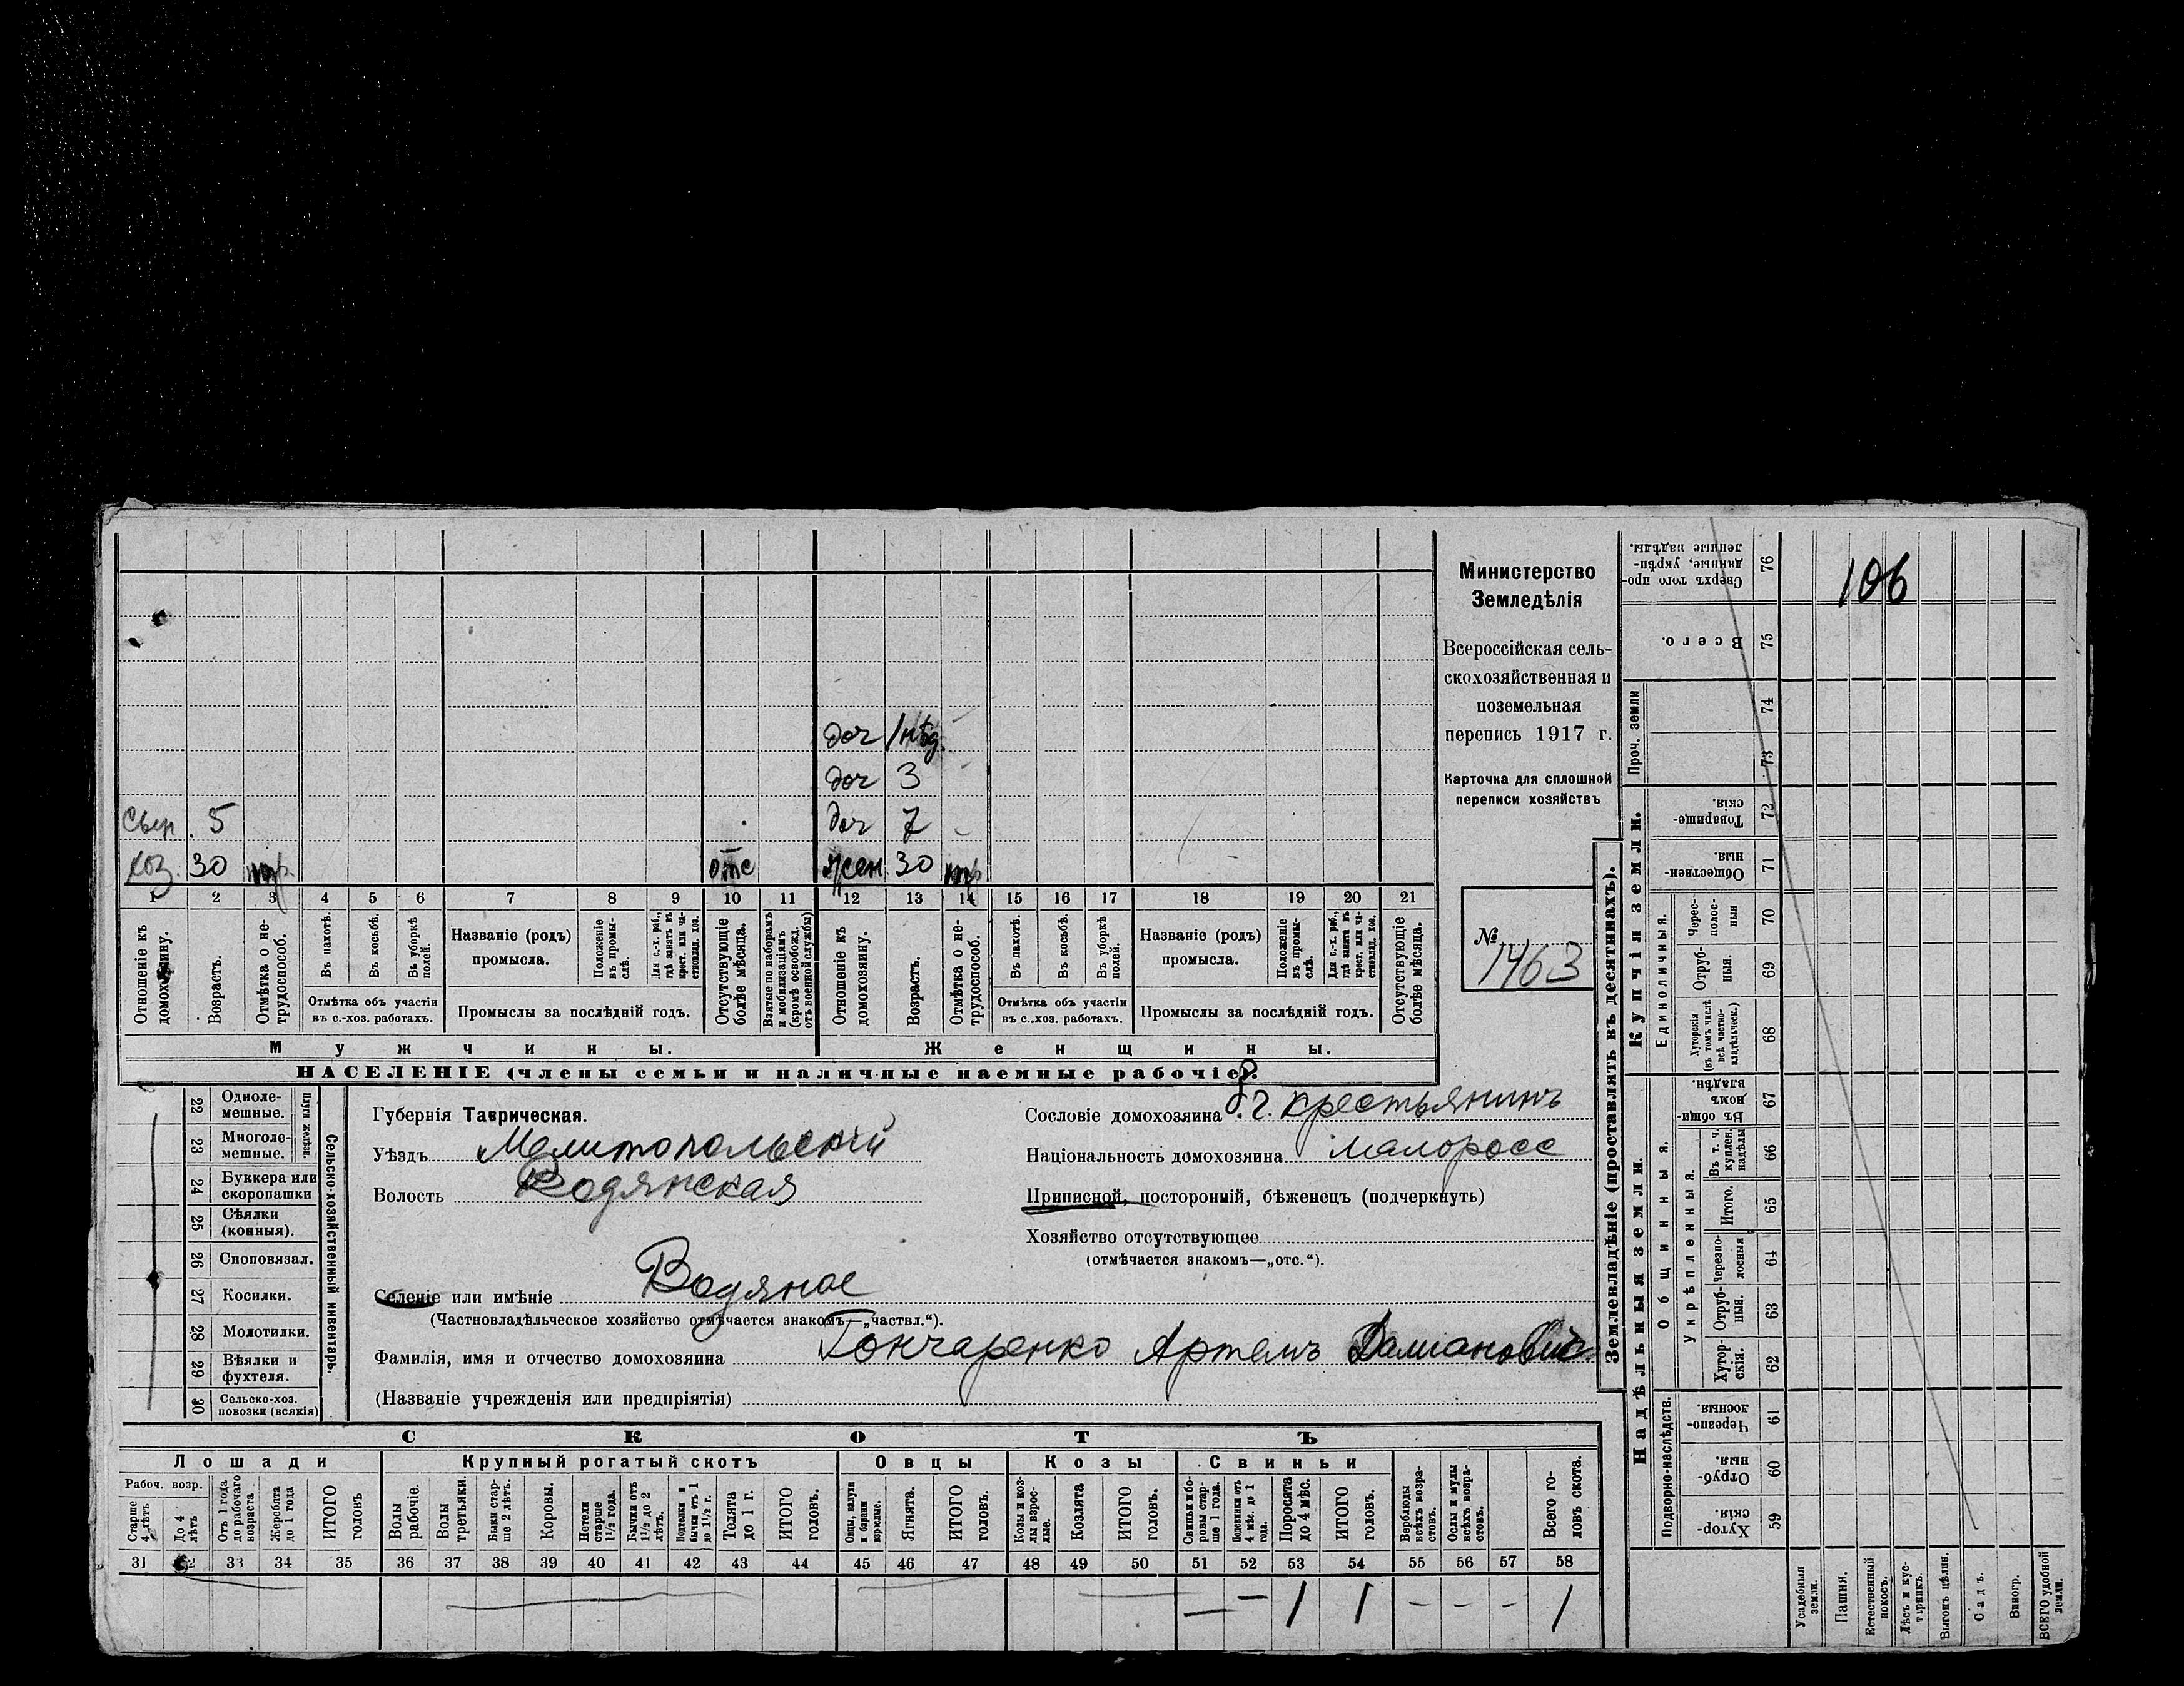 106
дог 1 нед.
дог 3
Сын 5
дог 7
хоз. 30 отс
жен 30
1 2 3 4 5 6 7 8 9 10 11 12 13 14 15 16 17 18 19 20 21
Отношеніе къ домохозяину.
Возрастъ.
Отмѣтка о не-трудоспособ.
Въ пахотѣ.
Въ косьбѣ.
Въ уборкѣ полей.
Отмѣтка объ участіи въ с.-хоз. работахъ.
Названіе (родъ) промысла.
Положеніе въ промы-слѣ.
Для с.-х. раб., гдѣ занятъ въ крест. или ча-стновлад. хоз.
Промыслы за послѣдній годъ.
Отсутствующіе болѣе мѣсяца.
Взятые по наборамъ и мобилизаціямъ (кромѣ освобожд. отъ военной службы)
Отношеніе къ домохозяину.
Возрастъ.
Отмѣтка о не-трудоспособ.
Въ пахотѣ.
Въ косьбѣ.
Въ уборкѣ полей.
Отмѣтка объ участіи въ с.-хоз. работахъ.
Названіе (родъ) промысла.
Положеніе въ промы-слѣ.
Для с.-х. раб., гдѣ занята въ крест. или ча-стновлад. хоз.
Промыслы за послѣдній годъ.
Отсутствующіе болѣе мѣсяца.
Мужчины. Женщины.
НАСЕЛЕНІЕ (члены семьи и наличные наемные рабочіе).
Министерство
Земледѣлія
Всероссійская сель-
скохозяйственная и
поземельная
перепись 1917 г.
Карточка для сплошной
переписи хозяйствъ
№
1463
Сельско-хозяйственный инвентарь.
Плуги желѣзн.
22 Одноле-мешные.
23 Многоле-мешные.
24 Буккера или скоропашки
25 Сѣялки (конныя).
26 Сноповязал.
27 Косилки.
28 Молотилки.
29 Вѣялки и фухтеля.
30 Сельско-хоз. повозки (всякія)
Губернія Таврическая.
Уѣздъ Мелитопольскій
Волость Водянская
Селеніе или имѣніе Водяное
(Частновладѣльческое хозяйство отмѣчается знакомъ—„частвл.“).
Фамилія, имя и отчество домохозяина Гончаренко Артемъ Даміановичъ
(Названіе учрежденія или предпріятія)
Сословіе домохозяина крестьянинъ
Національность домохозяина малоросс
Приписной, посторонній, бѣженецъ (подчеркнуть)
Хозяйство отсутствующее
(отмѣчается знакомъ—„отс.“).
СКОТЪ
Лошади Крупный рогатый скотъ Овцы Козы Свиньи
Рабоч. возр.
Старше 4 лѣтъ
До 4 лѣтъ
Отъ 1 года до рабочаго возраста
Жеребята до 1 года
ИТОГО головъ
Волы рабочіе.
Волы третьяки.
Быки стар-ше 2 лѣтъ.
Коровы.
Нетели старше 1½ года.
Бычки отъ 1½ до 2 лѣтъ.
Подтелки и бычки отъ 1 до 1½ г.
Телята до 1 г.
ИТОГО головъ.
Овцы, валухи и бараны взрослые.
Ягнята.
ИТОГО головъ.
Козы и коз-лы взрос-лые.
Козлята
ИТОГО головъ.
Свиньи и бо-ровы стар-ше 1 года.
Подсвинки отъ 4 мѣс. до 1 года.
Поросята до 4 мѣс.
ИТОГО головъ.
Верблюды всѣхъ возра-стовъ.
Ослы и мулы всѣхъ возра-стовъ.
Всего го-ловъ скота.
31 32 33 34 35 36 37 38 39 40 41 42 43 44 45 46 47 48 49 50 51 52 53 54 55 56 57 58
— — 1 1 - - - 1
Землевладѣніе (проставлять въ десятинахъ).
Надѣльныя земли. Купчія земли. Проч. земли
Подворно-наслѣдств.
Общинныя.
Укрѣпленныя.
Единоличныя.
Хутор-скія. 59
Отруб-ныя. 60
Черезпо-лосныя 61
Хутор-скія. 62
Отруб-ныя. 63
Черезпо-лосныя 64
Итого. 65
Въ т. ч. куплен. надѣлы 66
Въ общи-номъ владѣн. 67
Хуторскія (въ томъ числѣ всѣ частно-владѣльческ.) 68
Отруб-ныя. 69
Черес-полос-ныя 70
Обществен-ныя. 71
Товарище-скія. 72
73
74
Всего. 75
Сверхъ того про-данные, укрѣп-ленные надѣлы. 76
Усадебныя земли.
Пашня.
Естественный покосъ.
Лѣсъ и кус-тарникъ.
Выгонъ цѣлин.
Садъ.
Виногр.
ВСЕГО удобной земли.